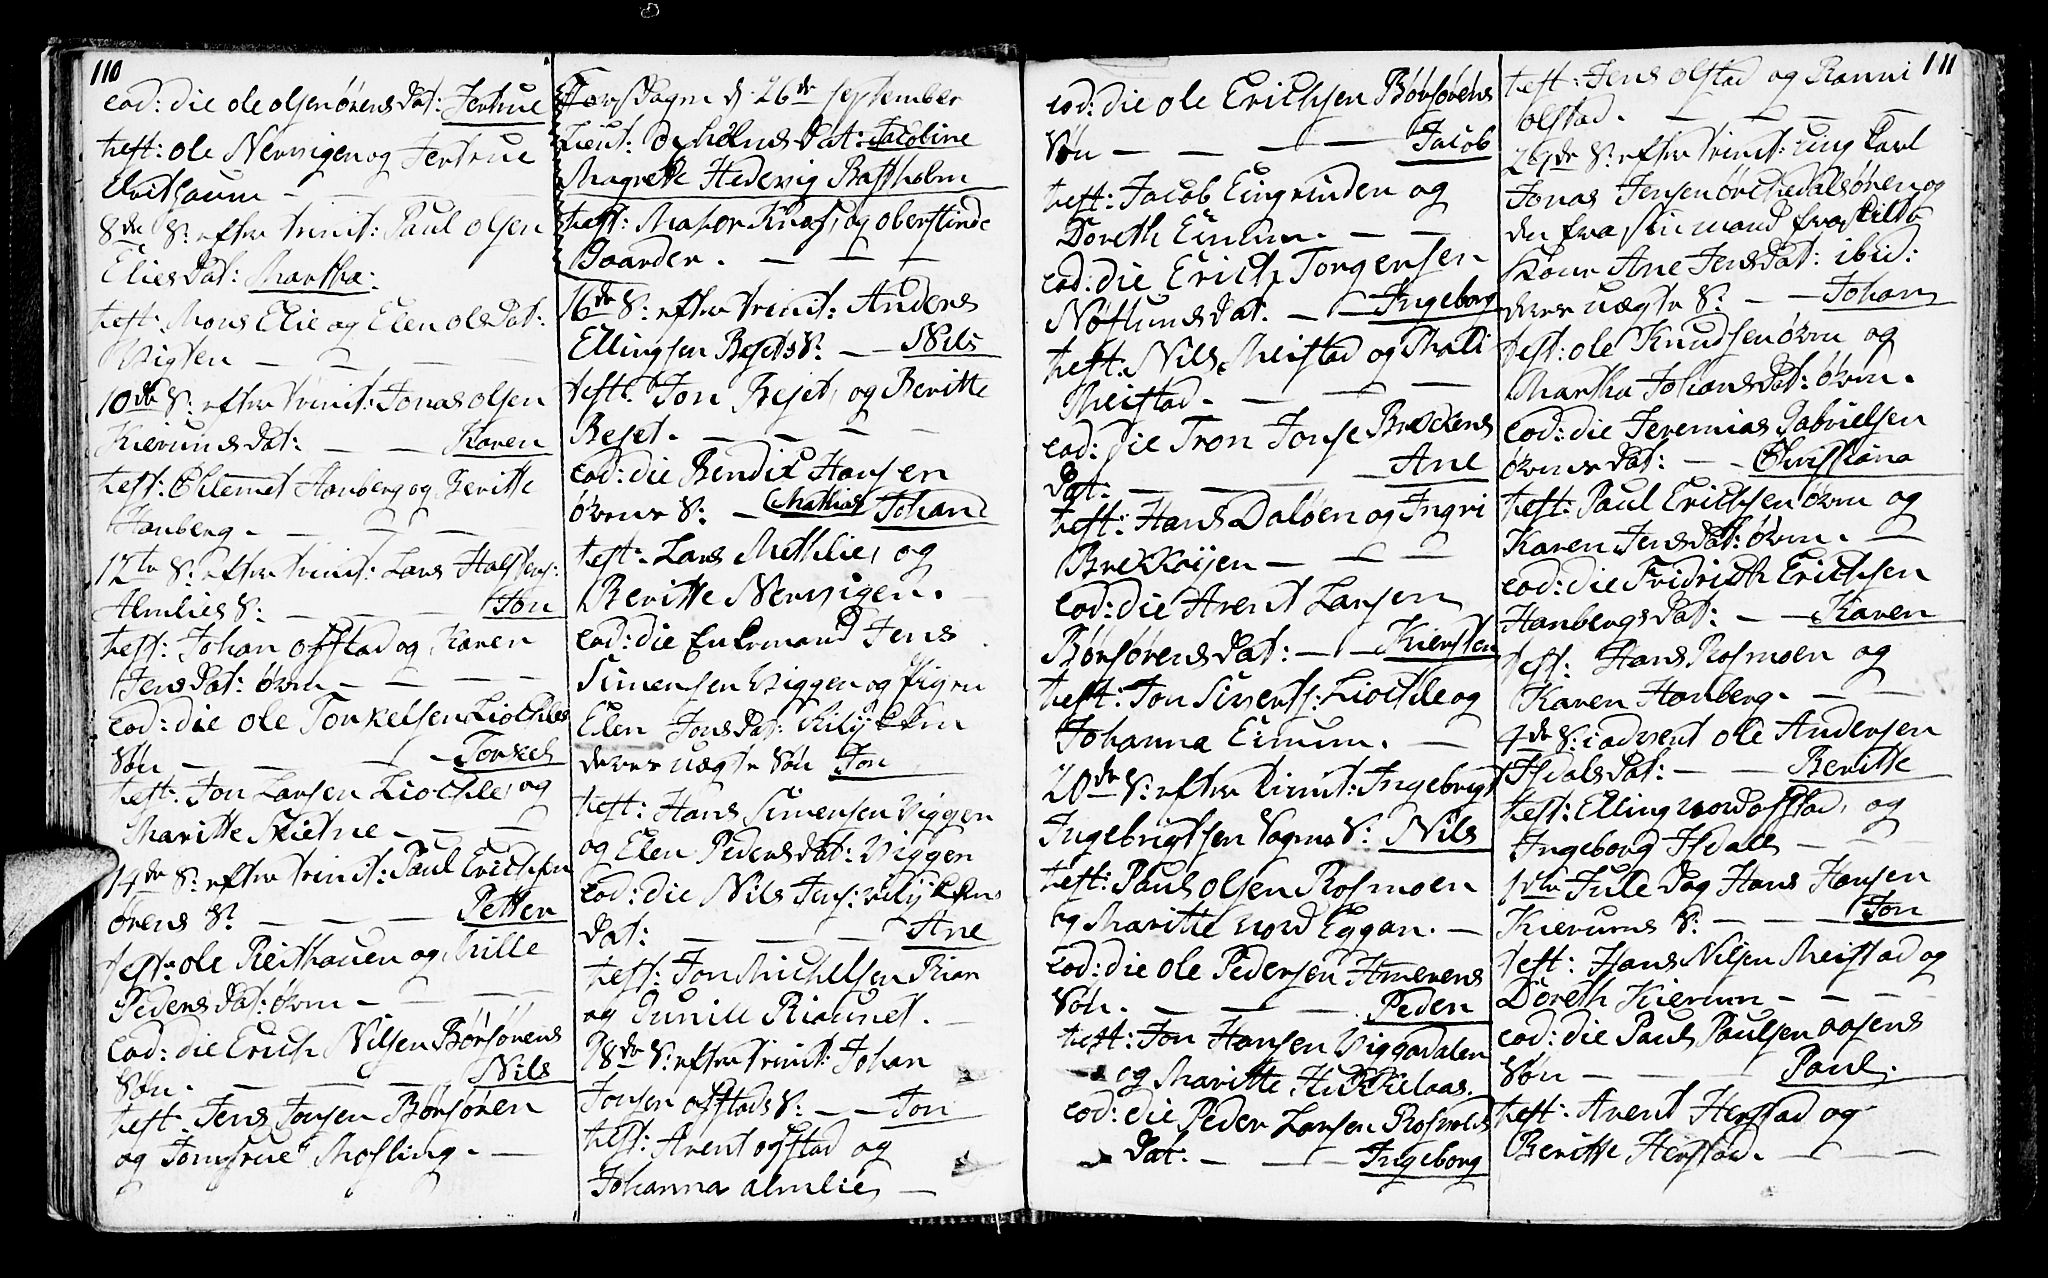 110
eod: die ole olsen ørens dat: Jertrue
test: ole Nervigen og Jertrue
8de S: efter trinit: Paul olsen
Elies dat: Martha.
test: Mons Elie og Elen olsdat:
Vigten — — —
10de S: efter trinit: Jonas olsen
Kierums dat: — — Karen
test: Chlemet Hanberg og Beritte
Hanberg — — — —
12te S: efter trinit: Lars Halstens:
Almlies S: — — — Jon
test: Johan ofstad og Karen
Jensdat: ørn — — — —
eod: die ole Torkelsen Liochles
Søn — — — — Torkel
test: Jon Larsen Liochle, og
Maritte Skietne — — —
14de S: efter trinit: Paul Erichsen
ørens S: — — — Petter
test: ole Reithauen og Mille
Pedersdat: ørn — — — —
eod: die Erich Nilsen Børsørens
Søn. — — — — Nils
test. Jens Jonsen Børsøren
og Jomfrue Mosling. —
Torsdagen d. 26de september
Lieut: Bastholms dat: Jacobine
Magrette Hedevig Bastholm
test: Major Knaf, og oberstinde
Gaarder. — — —
16de S: efter trinit: Anders
Ellingsen Besets S: — — Nils
test: Jon Beset, og Beritte
Beset. — — — —
eod: die Bendix Hansen
ørens S: — Mathias Johan
test: Lars Mithlie, og
Beritte Nervigen.
eod: die Enkemand Jens
Simensen Viggen og Pigen
Elen Jonsdat:
deres uægte Søn Jon
test: Hans Simensen Viggen
og Elen Pedersdat: Viggen
eod: die Nils Jens:
dat: — — — Ane
test: Jon Michelsen Rian
og Gunild Riaunet. —
18de S: efter trinit: Johan
Jonsen ofstads S: — — Jon
test: Arent ofstad og
Johanna almlie, —
111
eod: die ole Erichsen Børsørens
Søn — — — — Jacob
test: Jacob Eingrinden og
Doreth Eimum. — —
eod: die Erich Torgersen
Nøstums dat: — — Ingeborg
test. Nils Meistad og Mali
Meistad. — — —
eod: die Tron Jonse Breckens
dat: — — — — Ane
test: Hans Daløen og Ingri
Brekkøijen — — —
eod: die Arent Larsen
Børsørens dat: — — Kiersten
test: Jon Siverts: Liochle og
Johanna Eimum. —
20de S: efter trinit: Ingebrigt
Ingebrigtsen Vagnes S: Nils
test: Paul olsen Rosmoen
og Maritte nord Eggan. —
eod: die ole Pedersen Hmerens
Søn. — — — Peder
test: Jon Hansen Viggadalen
og Maritte Hukkelaas.
eod: die Peder Larsen Rosvolds
dat. — — — Ingeborg
test: Jens olstad og Ranni
olstad. — — —
26de S: efter trinit: ung Karl
Jonas Jensen ørchedalsøren og
Kone Ane Jensdat: ibid:
deres uægte S: — — Johan
test: ole Knudsen ørn og
Martha Johansdat: ørn.
eod: die Jeremias Gabrielsen
ørens dat: — — Christiana
test: Paul Erichsen ørn og
Karen Jensdat: ørn. — —
eod: die Fridrich Erichsen
Hanbergs dat: — — Karen
test: Hans Rosmoen og
Karen Hanberg. — —
4de S: i advent ole Andersen
Isdals dat: — — Beritte
test: Elling nordofstad, og
Ingeborg Isdal — — —
1ste Jule dag Hans Hansen
Kierums S: — — — Jon
test: Hans Nilsen Meistad og
Doreth Kierum — — —
eod: die Paul Paulsen aasens
Søn — — — Paul.
test: Arent Herstad og
Beritte Herstad. — — —